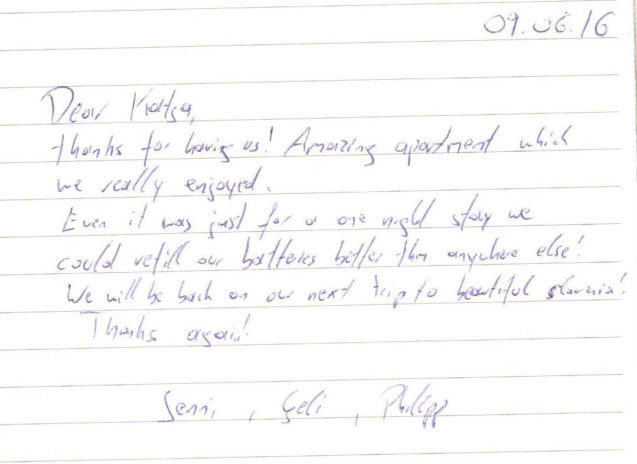 09.06.16
Dear Katja,
thanks for having us! Amazing apartment which
we really enjoyed.
Even it was just for a one night stay we
could refill our batteries better than anywhere else!
We will be back on our next trip to beautiful slovenia!
Thanks again!
Jenni, , Geli , Philipp